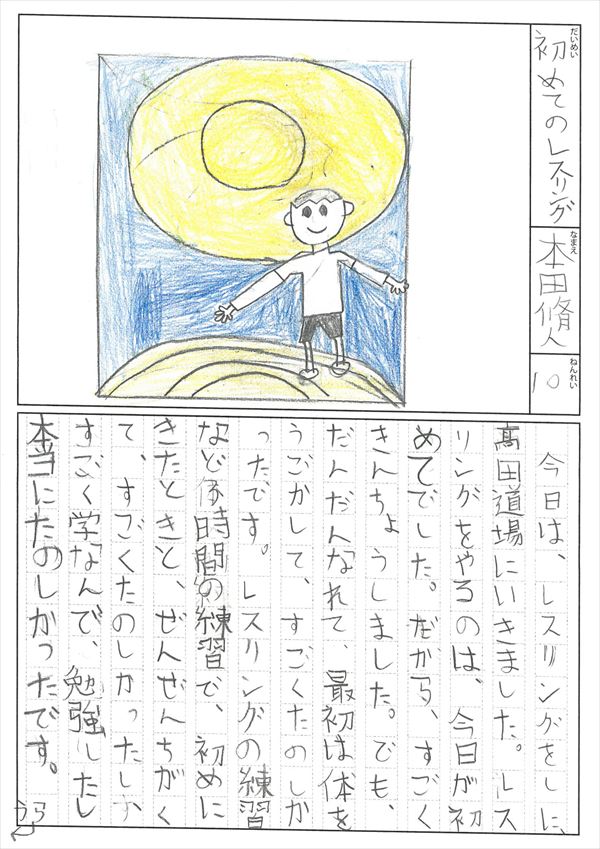 だいめい
初めてのレスリング
なまえ
本田脩人
ねんれい
10
今日は、レスリングをしに、
髙田道場にいきました。レス
リングをやるのは、今日が初
めてでした。だから、すごく
きんちょうしました。でも、
だんだんなれて、最初は体を
うごかして、すごくたのしか
ったです。レスリングの練習
など時間の練習で、初めに
きたときと、ぜんぜんちがく
て、すごくたのしかったし、
すごく学なんで、勉強したし
本当にたのしかったです。
うら